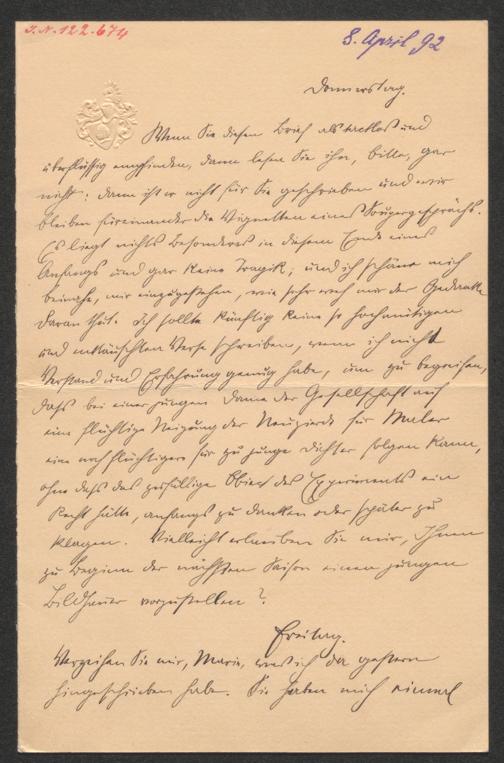 I.N. 122.674
8. April 92
Donnerstag.
Wenn Sie diesen Brief als tactlos und
überflüssig empfinden, dann lesen Sie ihn, bitte, gar
nicht: dann ist er nicht für Sie geschrieben und wir
bleiben füreinander die Vignetten eines Soupergesprächs.
Es liegt nichts Besonderes in diesem Ende eines
Anfangs und gar keine Tragik, und ich schäme mich
beinahe, mir einzugestehen, wie sehr weh mir der Gedanke
daran thut. Ich sollte künftig keine so hochmütigen
und enttäuschten Verse schreiben, wenn ich nicht
Verstand und Erfahrung genug habe, um zu begreifen,
dass bei einer jungen Dame der Gesellschaft auf
eine flüchtige Neigung der Neugierde für Maler
eine noch flüchtigere für zu junge Dichter folgen kann,
ohne dass das zufällige Object des Experiments ein
Recht hätte, anfangs zu danken oder später zu
klagen. Vielleicht erlauben Sie mir, Ihnen
zu Beginn der nächsten Saison einen jungen
Bildhauer vorzustellen?
Freitag.
Verzeihen Sie mir, Marie, was ich da gestern
hingeschrieben habe. Sie haben mich einmal